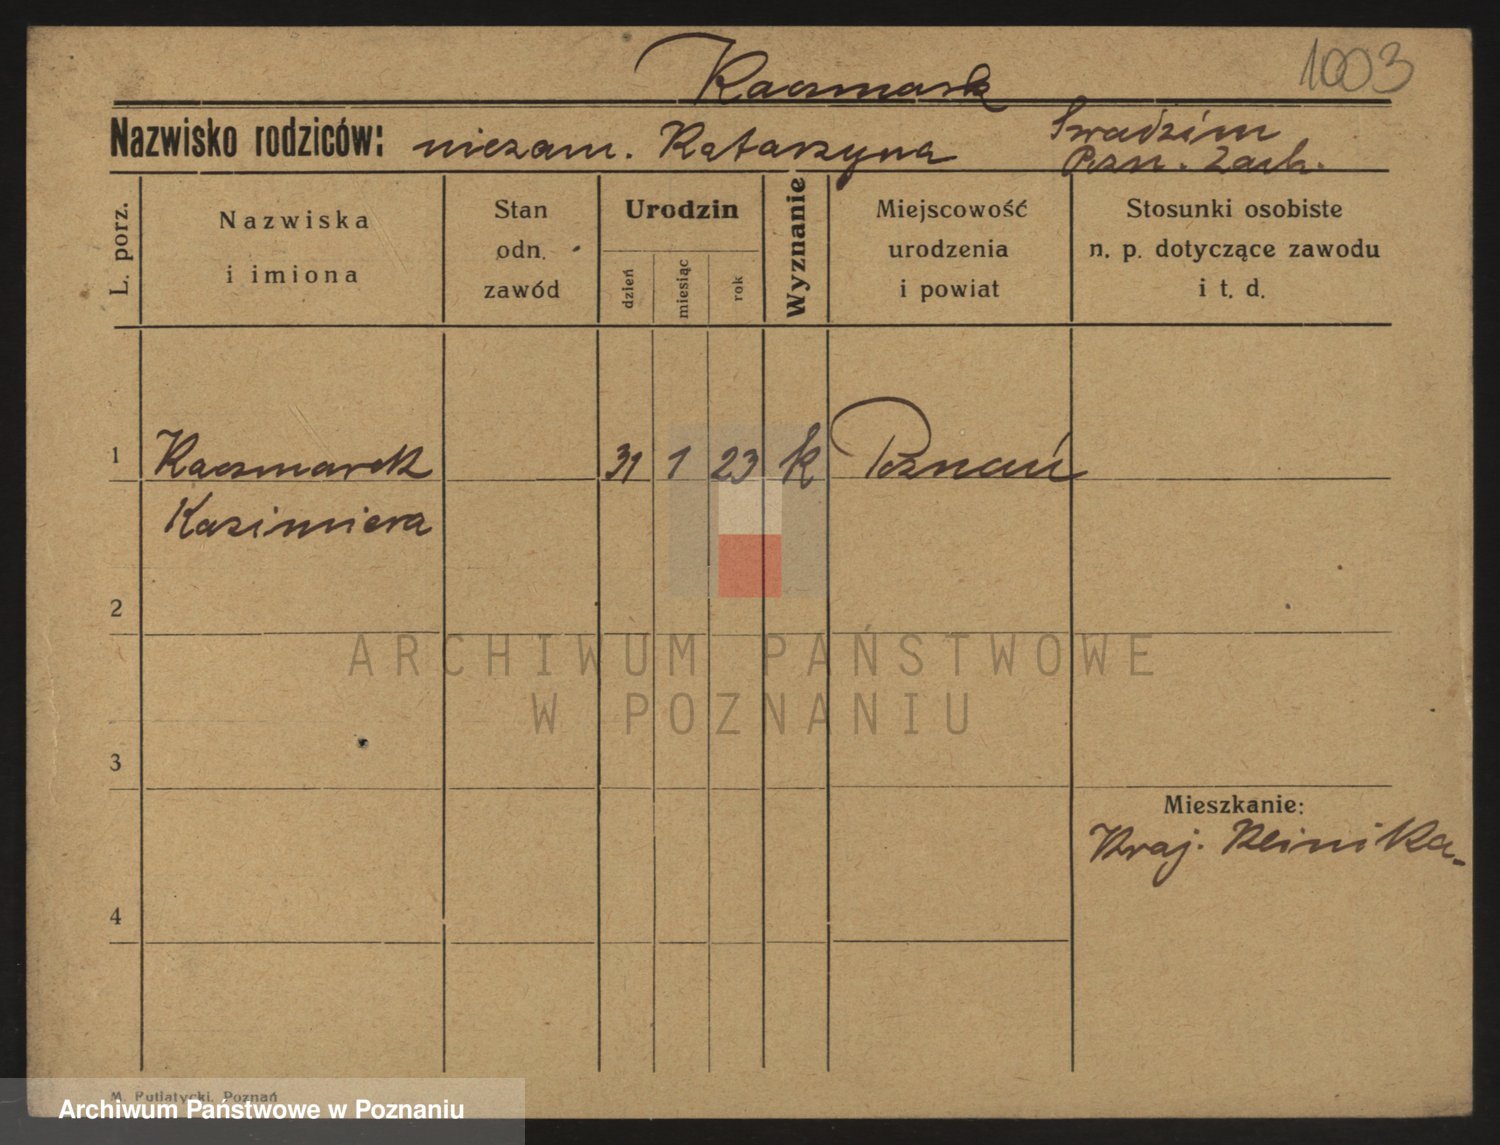 1003
Kaczmarek
Nazwisko rodziców: niezam. Katarzyna
Swadzim
Pozn. Zach.
L. porz.
Nazwiska
i imiona
Stan
odn.
zawód
Urodzin
dzień
miesiąc
rok
Wyznanie
Miejscowość
urodzenia
i powiat
Stosunki osobiste
n. p. dotyczące zawodu
i t. d.
1 Kaczmarek 31 1 23 k Poznań
Kazimiera
2
ARCHIWUM PAŃSTWOWE
W POZNANIU
3
Mieszkanie:
Kraj. Klinika
4
M. Putiatycki, Poznań
Archiwum Państwowe w Poznaniu